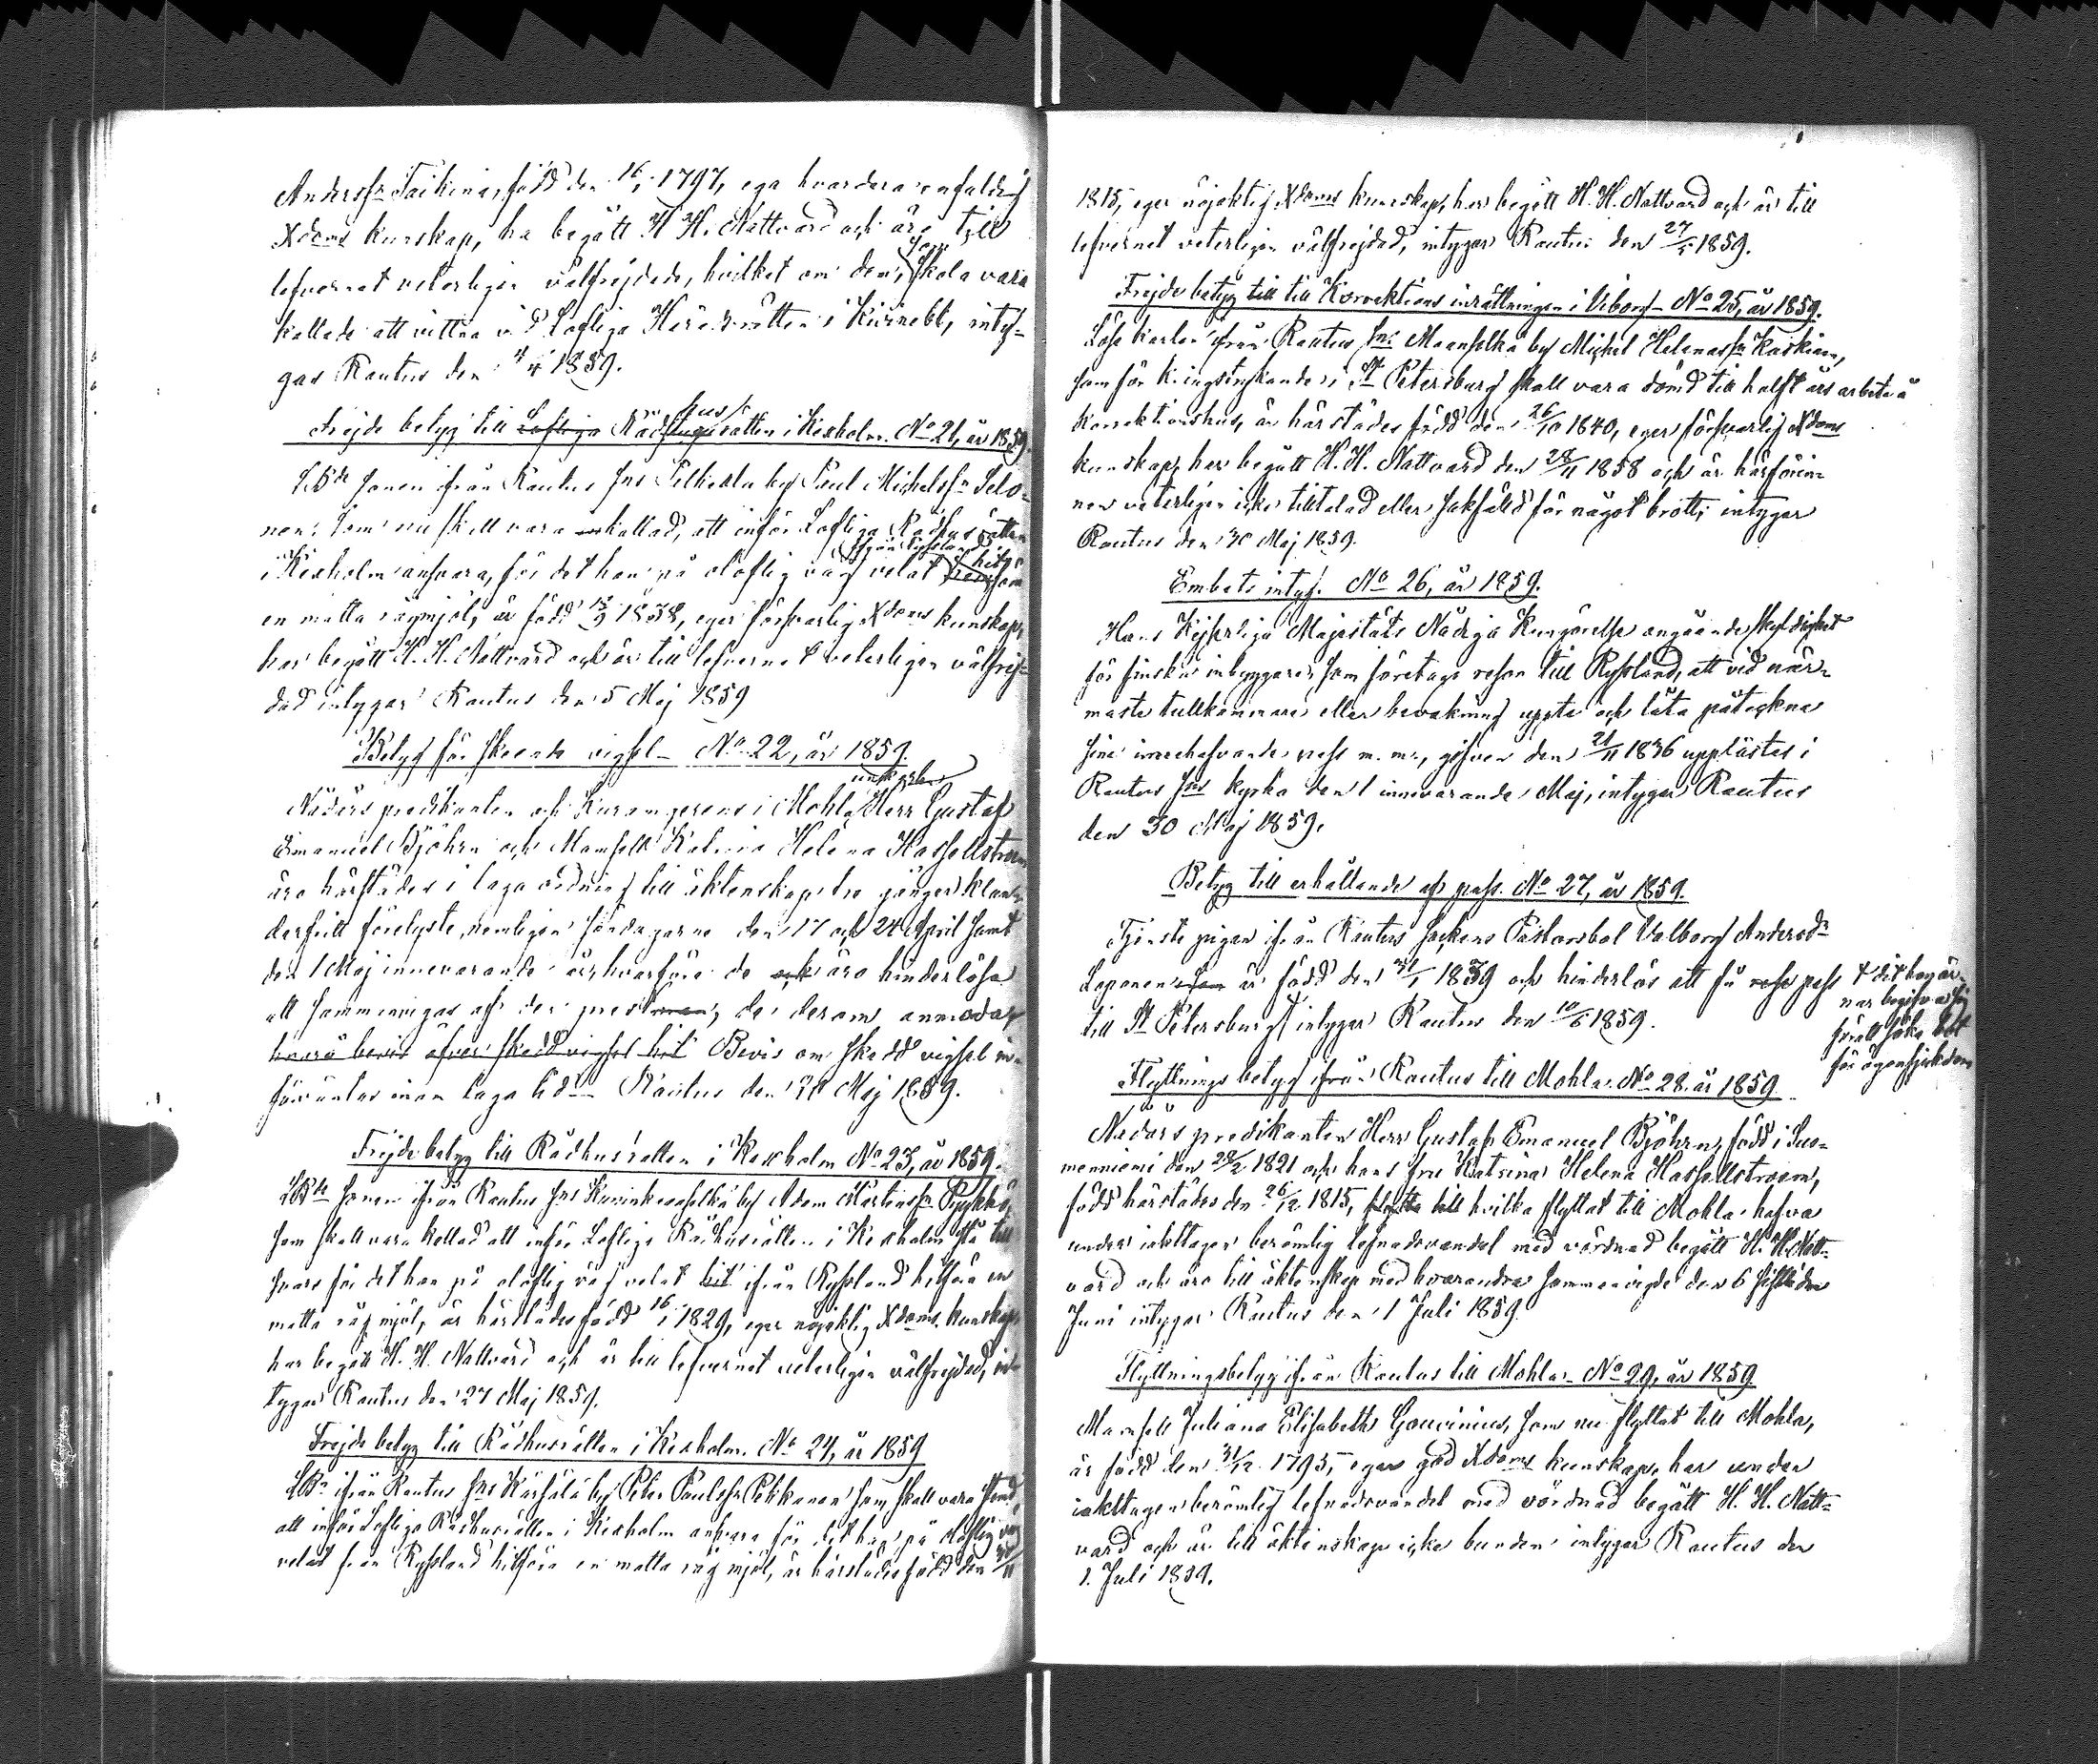 Anderssn Taikina, född den 16/1 1797, ega hvardera enfaldig
Xdoms kunskap, ha begått H. H. Nattvard och äro till
lefvernet veterligen välfrejdade, hvilket om dem, som skola vara
kallade att vittna vid Lofliga Häradsrätten i Kivinebb, inty-
gas Rautus den 4/4 1859.
Frejdebetyg till Lofliga Rådstuguhus rätten i Kexholm. No 21, år 1859.
sonen ifrån Rautus sns Pelkeala by Paul Michelssn Selo-
nen, som nu skall vara kallad, att inför Lofliga Rådhusrätten
i Kexholm ansvara, för det han på oloflig väg velat ifrån Ryssland hitföra
en matta rågmjöl, är född 13/9 1838, eger försvarlig Xdoms kunskap,
har begått H. H. Nattvard och är till lefvernet veterligen välfrej-
dad intygar Rautus den 5 Maj 1859
Betyg för skeende vigsel No 22, år 1859.
Nådårs predikanten och Kuramgerens i Mohla ungkarlen Herr Gustaf
Emanuel Björhn och Mamsell Katrina Helena Hassellstroem
äro härstädes i laga ordning till äktenskap tre gånger klan-
derfritt förelyste, nemligen söndagarne den 17 och 24 April samt
den 1 Maj innevarande år, hvarföre de och äro hinderlösa
att sammanvigas af den prestman, de derom anmoda
bevis öfver skedd vigsel hit Bevis om skedd vigsel in-
förväntas inom laga tid. Rautus den Maj 1859.
Frejdebetyg till Rådhusrätten i Kexholm No 23, år 1859.
sonen ifrån Rautus sns by Adam Mårtenssn
som skall vara kallad att inför Lofliga Rådhusrätten i Kexholm stå till
svars för det han på oloflig väg velat hit ifrån Ryssland hitföra en
matta rågmjöl, är härstädes född 16/1 1829, eger nöjaktig Xdoms kunskap,
har begått H. H. Nattvard och är till lefvernet veterligen välfrejdad, in-
tygar Rautus den 27 Maj 1859.
Frejdebetyg till Rådhusrätten i Kexholm. No 24, år 1859
ifrån Rautus sns Kärsälä by Peter Paulssn Pekkanen som skall vara
att inför Lofliga Rådhusrätten i Kexholm ansvara för det han på oloflig väg
velat från Ryssland hitföra en matta rågmjöl, är härstädes född den
1815, eger nöjaktig Xdoms kunskap, har begått H. H. Nattvard och är till
lefvernet veterligen välfrejdad, intygar Rautus den 27/5 1859.
Frejdebetyg till till Korrektions inrättningen i Viborg No 25, år 1859.
Löse karlen ifrån Rautus sns Maanselkä by Michel Helenassn Kaskinen,
som för kringstrykande i St Petersburg skall vara dömd till halft års arbete å
korrektionshus, är härstädes född den 26/10 1840, eger försvarlig Xdoms
kunskap, har begått H. H. Nattvard den 28/11 1858 och är härförin-
nan veterligen icke tilltalad eller sakfälld för något brott, intygar
Rautus den 30 Maj 1859.
Embets intyg. No 26, år 1859.
Hans Kejserliga Majestäts Nådiga Kungörelse angående skyldighet
för finska inbyggare, som företaga resan till Ryssland, att vid när-
maste tullkammare eller bevakning uppte och låta påteckna
sine innehafvande pass m. m., gifven den 21/11 1836 upplästes i
Rautus sns kyrka den 1 innevarande Maj, intygar Rautus
den 30 Maj 1859.
Betyg till erhållande af pass. No 27, år 1859.
Tjenste pigan ifrån Rautus sockens Pastorsbol Valborg Andersdr
Loponen är född den 31/1 1839 och hinderlös att få pass
till St Petersburg intygar Rautus den 10/6 1859.
dit hon är-
nar begifva sig
för att söka bot
för ögonsjukdom
Flyttnings betyg ifrån Rautus till Mohla. No 28. år 1859
Nådårs predikanten Herr Gustaf Emanuel Björhn, född i Suo-
menniemi den 29/2 1821 och hans fru Katrina Helena Hassellstroem,
född härstädes den 26/12 1815, flytta till hvilka flyttat till Mohla hafva
under iakttagen berömlig lefnadsvandel med vördnad begått H. H. Natt-
vard och äro till äktenskap med hvarandra sammanvigde den 6 sistledne
Juni intygar Rautus den 1 Juli 1859
Flyttningsbetyg ifrån Rautus till Mohla. No 29, år 1859
Mamsell Juliana Elisabeth Gouvinius, som nu flyttat till Mohla,
är född den 31/12 1795, eger god Xdoms kunskap, har under
iakttagen berömlig lefnadsvandel med vördnad begått H. H. Natt-
vard och är till äktenskap icke bunden intygar Rautus den
1. Juli 1859.